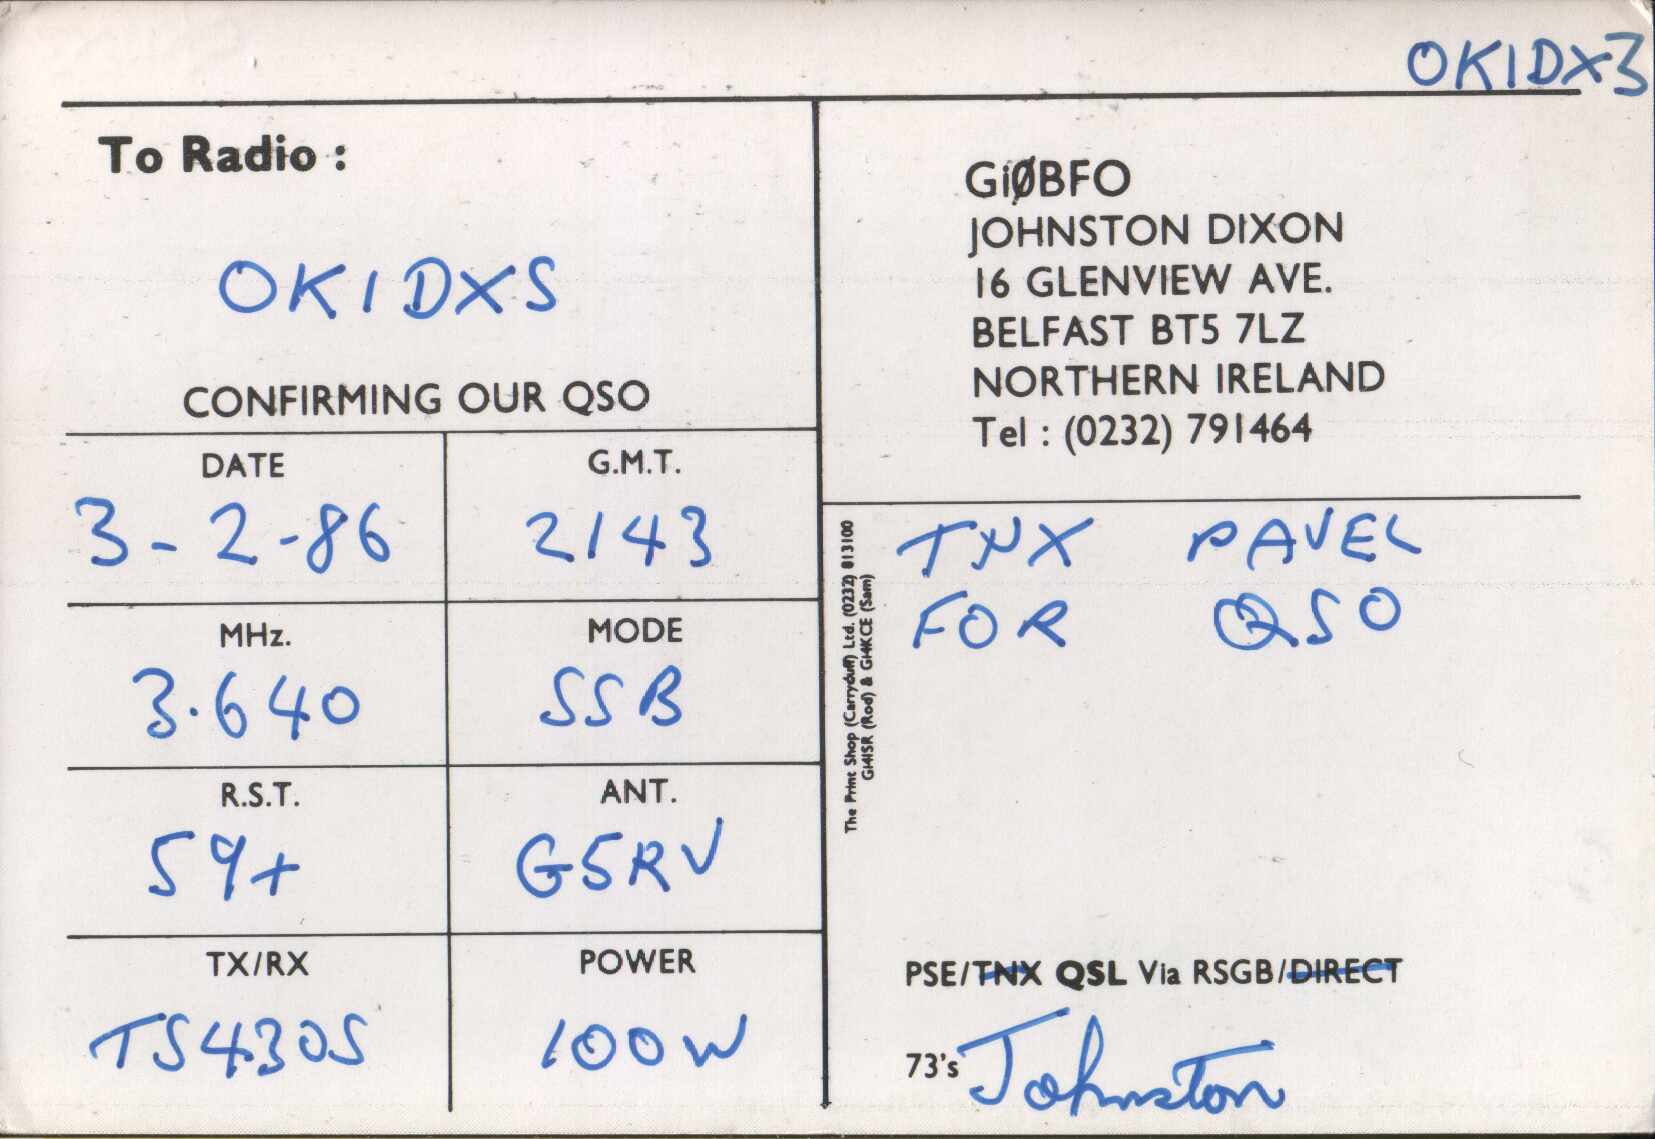 OK1DX3
To Radio :
OK1DXS
CONFIRMING OUR QSO
DATE
G.M.T.
3-2-86
2143
MHz.
MODE
3.640
SSB
R.S.T.
ANT.
59+
G5RV
TX/RX
POWER
TS430S
100W
GiØBFO
JOHNSTON DIXON
16 GLENVIEW AVE.
BELFAST BT5 7LZ
NORTHERN IRELAND
Tel : (0232) 791464
The Print Shop (Carryduff) Ltd. (0232) 813100
GI4ISR (Rod) & GI4KCE (Sam)
TNX PAVEL
FOR QSO
PSE/TNX QSL Via RSGB/DIRECT
73's Johnston